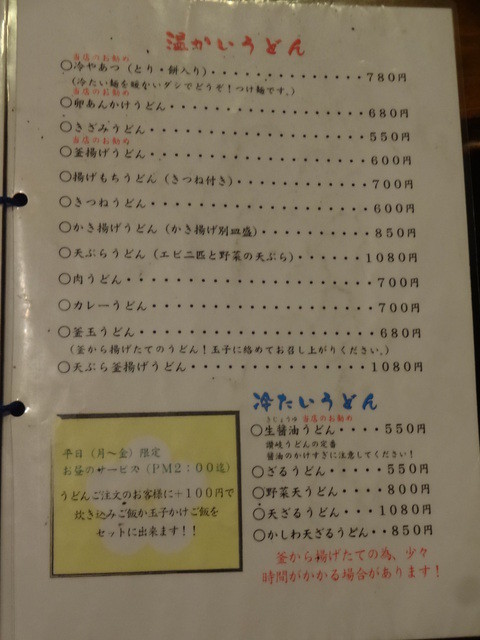 温かいうどん
当店のお勧め
○冷やあつ（とり・餅入り）・・・・・・・・・・・・・780円
（冷たい麺を暖ないダシでどうぞ！つけ麺です。）
当店のお勧め
○卵あんかけうどん・・・・・・・・・・・・・・・・680円
○きざみうどん・・・・・・・・・・・・・・・・・・550円
当店のお勧め
○釜揚げうどん・・・・・・・・・・・・・・・・・・600円
○揚げもちうどん（きつね付き）・・・・・・・・・・・700円
○きつねうどん・・・・・・・・・・・・・・・・・・600円
○かき揚げうどん（かき揚げ別皿盛）・・・・・・・・・850円
○天ぷらうどん（エビ二匹と野菜の天ぷら）・・・・・・1080円
○肉うどん・・・・・・・・・・・・・・・・・・・・700円
○カレーうどん・・・・・・・・・・・・・・・・・・700円
○釜玉うどん・・・・・・・・・・・・・・・・・・・680円
（釜から揚げたてのうどん！玉子に絡めてお召し上がりください。）
○天ぷら釜揚げうどん・・・・・・・・・・・・・・・1080円
冷たいうどん
きじょうゆ 当店のお勧め
○生醤油うどん・・・・550円
讃岐うどんの定番
醤油のかけすぎに注意してください！
○ざるうどん・・・・・550円
○野菜天うどん・・・・800円
○天ざるうどん・・・・1080円
○かしわ天ざるうどん・・850円
釜から揚げたての為、少々
時間がかかる場合があります！
平日（月～金）限定
お昼のサービス（PM2：00迄）
うどんご注文のお客様に+100円で
炊き込みご飯か玉子かけご飯を
セットに出来ます！！